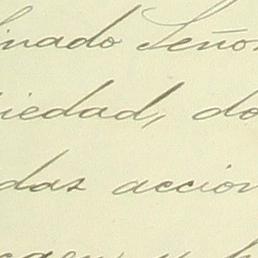 inado Señor
iedad, do
das accion